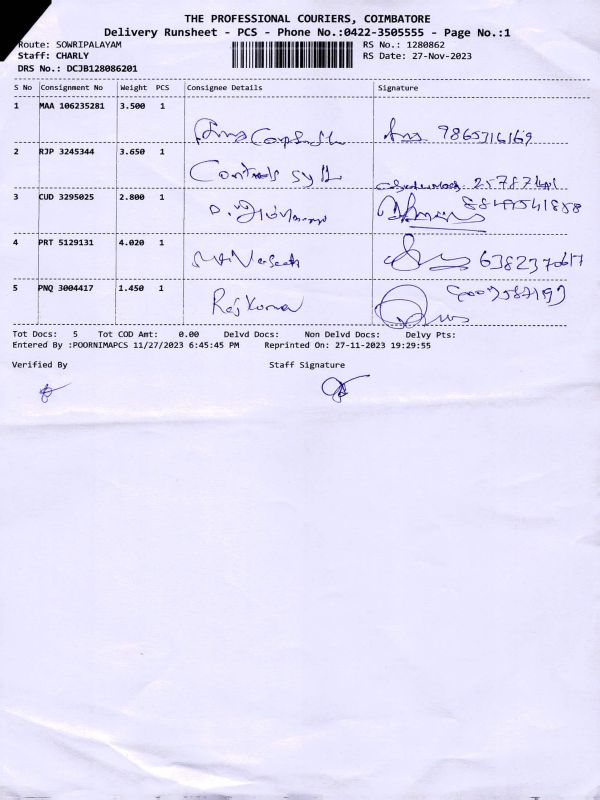 THE PROFESSIONAL COURIERS, COIMBATORE
Delivery Runsheet - PCS - Phone No.:0422-3505555 - Page No.:1
Route: SOWRIPALAYAM RS No.: 1280862
Staff: CHARLY RS Date: 27-Nov-2023
DRS No.: DCJB128086201
S No Consignment No Weight PCS Consignee Details Signature
1 MAA 106235281 3.500 1
9865716169
2 RJP 3245344 3.650 1
Controls
3 CUD 3295025 2.800 1
4 PRT 5129131 4.020 1
5 PNQ 3004417 1.450 1
Rajkumar
Tot Docs: 5 Tot COD Amt: 0.00 Delvd Docs: Non Delvd Docs: Delvy Pts:
Entered By :POORNIMAPCS 11/27/2023 6:45:45 PM Reprinted On: 27-11-2023 19:29:55
Verified By Staff Signature